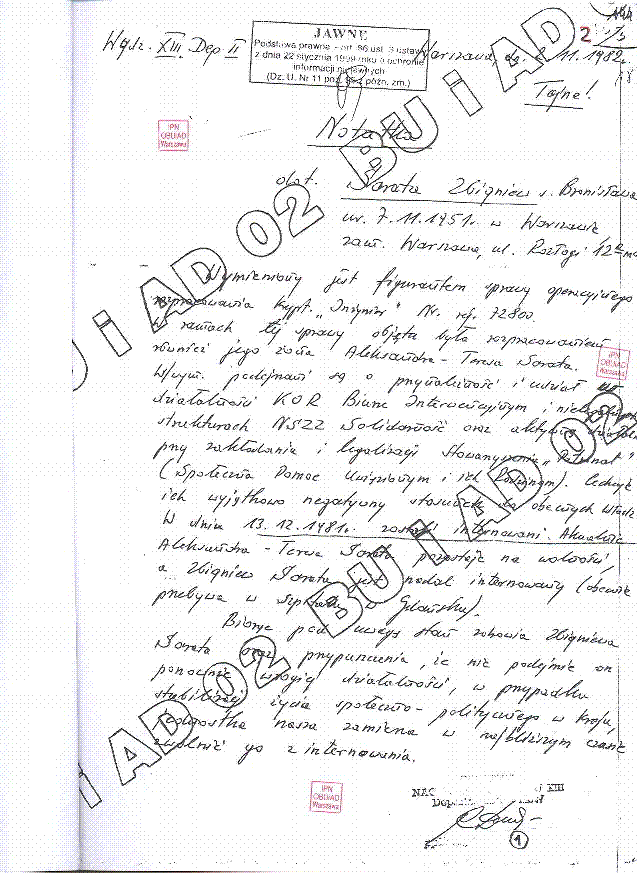 Wydz. XIII Dep II
JAWNE
Podstawa prawna - art. 86 ust. 3 ustawy
z dnia 22 stycznia 1999 roku o ochronie
informacji niejawnych
(Dz. U. Nr 11 poz. 95 z późn. zm.)
2
Warszawa, dn. 2.11.1982r.
Tajne!
Notatka
IPN
OBUiAD
Warszawa
dot. Sorata Zbigniew s. Bronisława
ur. 7.11.1951r. w Warszawie
zam. Warszawa, ul. Rozłogi 12
Wymieniony jest figurantem sprawy operacyjnego
rozpracowania krypt. „Inżynier" Nr. rej. 72800.
W ramach tej sprawy objęta była rozpracowaniem
również jego żona Aleksandra-Teresa Sorata.
IPN
OBUiAD
Warszawa
W/wym. podejrzani są o przynależność i udział w
działalności KOR Biurze Interwencyjnym i nielegalnych
strukturach NSZZ Solidarność oraz aktywny udział
przy zakładaniu i legalizacji Stowarzyszenia „Patronat"
(Społeczna Pomoc Uwięzionym i ich Rodzinom). Cechuje
ich wyjątkowo negatywny stosunek do obecnych władz.
W dniu 13.12.1981r. zostali internowani. Aktualnie
Aleksandra-Teresa Sorata pozostaje na wolności,
a Zbigniew Sorata jest nadal internowany (obecnie
przebywa w szpitalu w Gdańsku).
Biorąc pod uwagę stan zdrowia Zbigniewa
Sorata oraz przypuszczenia, że nie podejmie on
ponownie wrogiej działalności, w przypadku
stabilizacji życia społeczno-politycznego w kraju,
jednostka nasza zamierza w najbliższym czasie
zwolnić go z internowania.
IPN
OBUiAD
Warszawa
NAC XIII
1
BU i AD 02 BU i AD
BU i AD 02 BU i AD 02
i AD 02